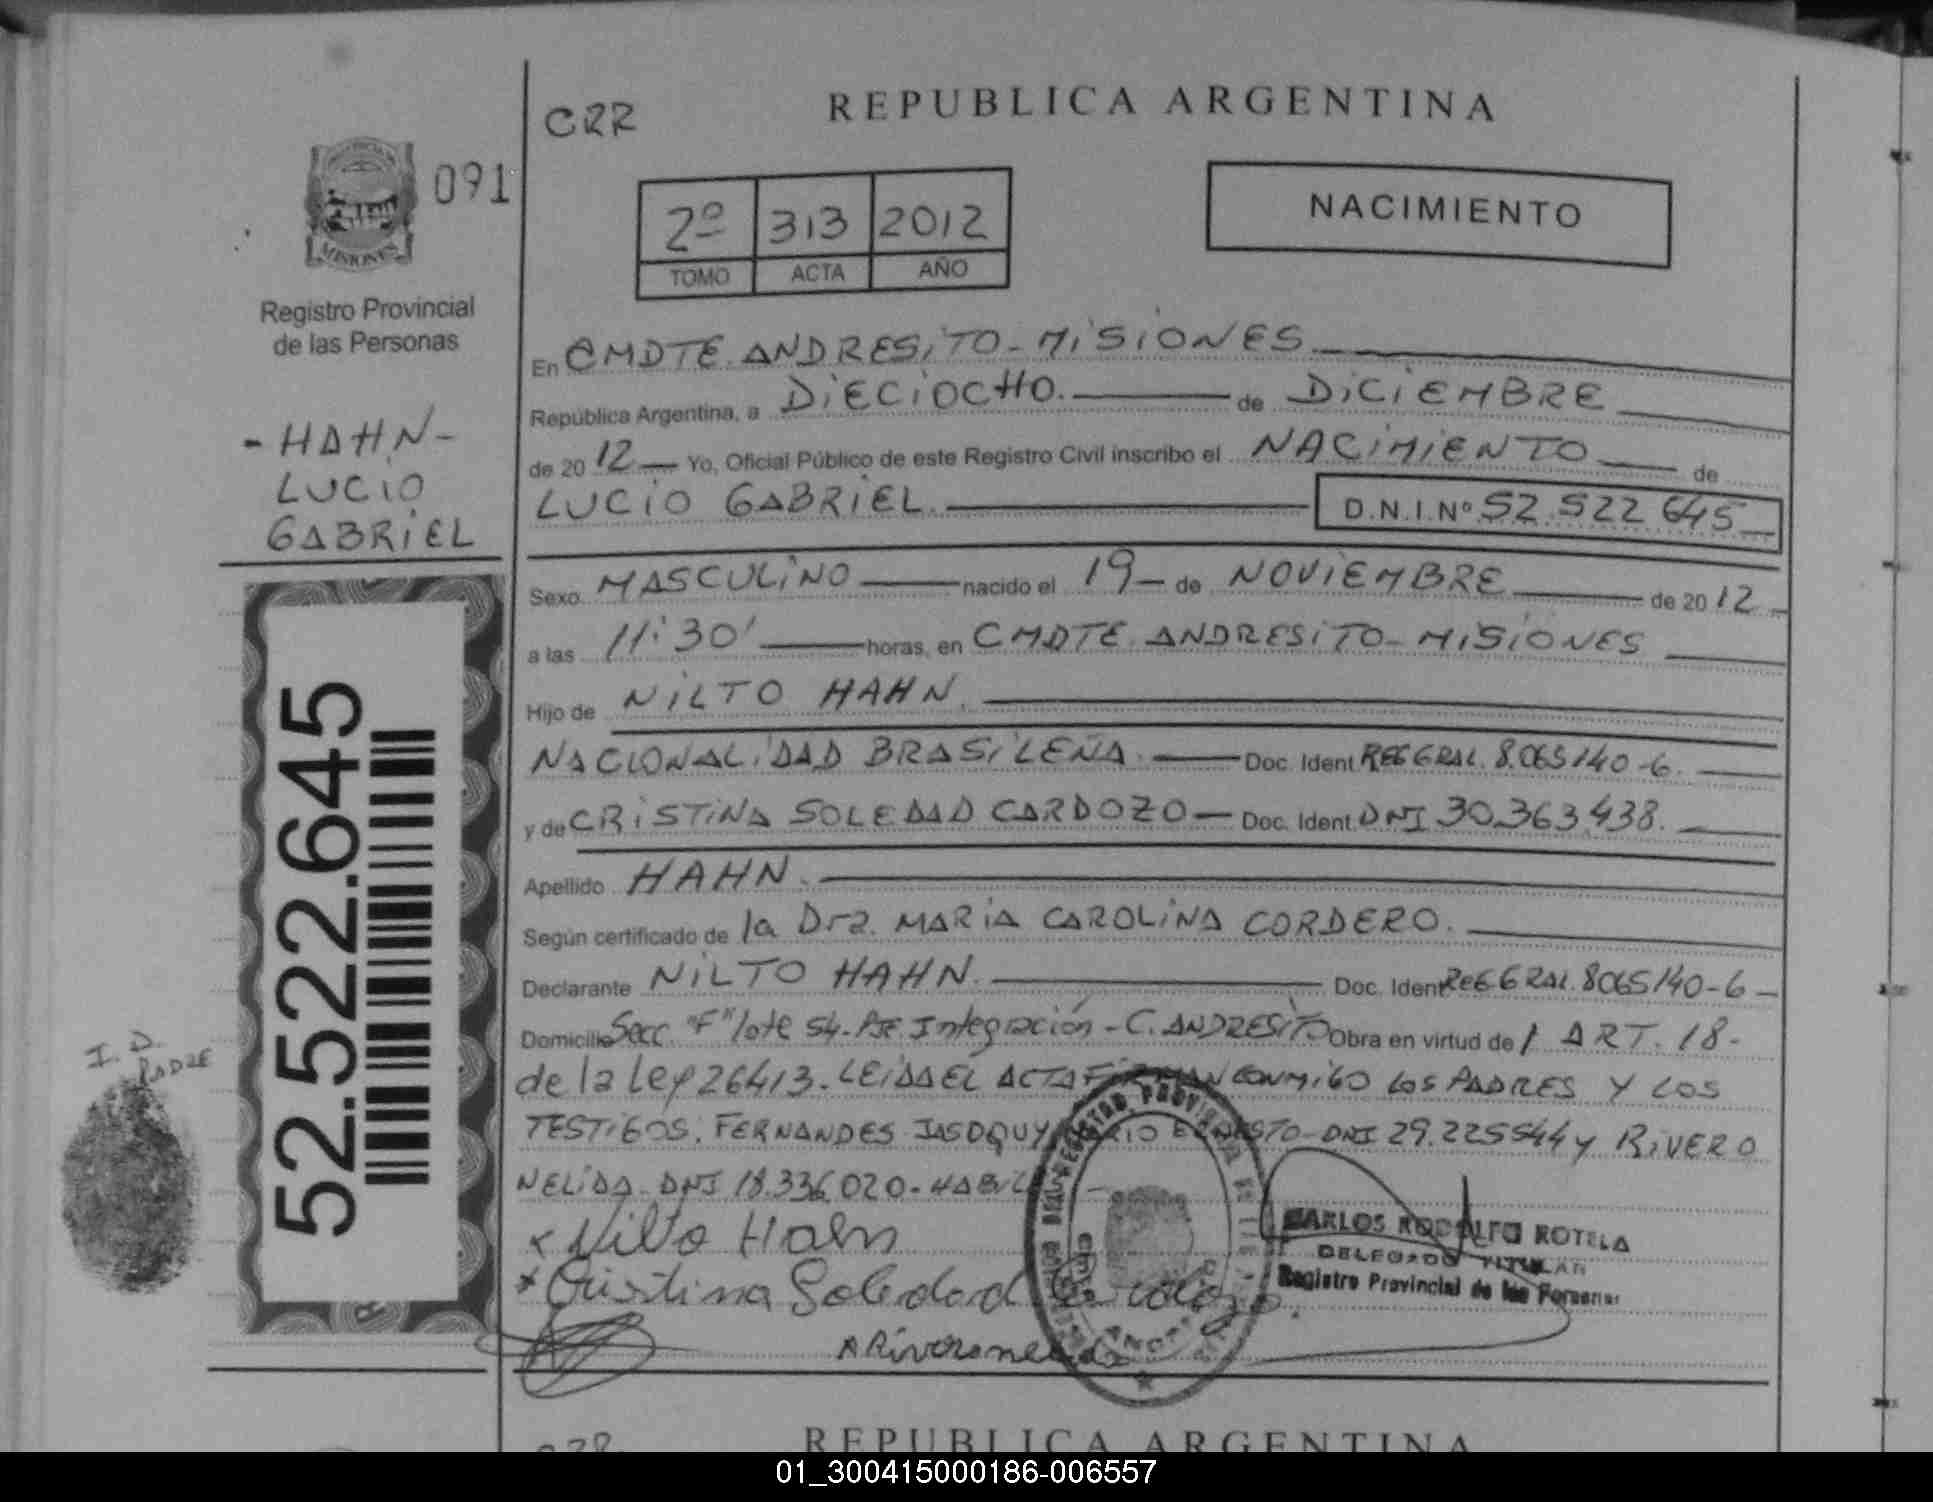 CRR
REPUBLICA ARGENTINA
091
MISIONES
Registro Provincial
de las Personas
- HAHN -
LUCIO
GABRIEL
2º 313 2012
TOMO ACTA AÑO
NACIMIENTO
En CMDTE. ANDRESITO - MISIONES
República Argentina, a DIECIOCHO. de DICIEMBRE
de 2012 Yo, Oficial Público de este Registro Civil inscribo el NACIMIENTO de
LUCIO GABRIEL. D.N.I. Nº 52.522.645
Sexo MASCULINO nacido el 19 de NOVIEMBRE de 2012
a las 11'30' horas, en CMDTE. ANDRESITO - MISIONES
Hijo de NILTO HAHN.
NACIONALIDAD BRASILEÑA. Doc. Ident. REG GRAL. 8.065140-6.
y de CRISTINA SOLEDAD CARDOZO Doc. Ident. DNI 30.363.438.
Apellido HAHN.
Según certificado de la Dra. MARIA CAROLINA CORDERO.
Declarante NILTO HAHN. Doc. Ident REG GRAL. 8065140-6
Domicilio Secc "F" lote 54 - Pje. Integración - C. ANDRESITO Obra en virtud de / ART. 18.
de la Ley 26413. LEIDA EL ACTA FIRMAN CONMIGO LOS PADRES Y LOS
TESTIGOS: FERNANDES DNI 29.225544 y RIVERO
NELIDA. DNI 18.336.020.
x Nilto Hahn
x Cristina Soledad Cardozo.
CARLOS RODOLFO ROTELA
DELEGADO TITULAR
Registro Provincial de las Personas
52.522.645
I. D.
PADRE
REPUBLICA ARGENTINA
01_300415000186-006557